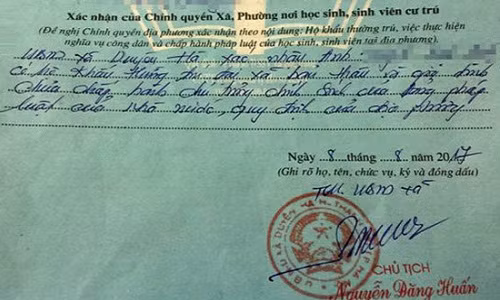 Xác nhận của Chính quyền Xã, Phường nơi học sinh, sinh viên cư trú
(Đề nghị Chính quyền địa phương xác nhận theo nội dung: Hộ khẩu thường trú, việc thực hiện
nghĩa vụ công dân và chấp hành pháp luật của học sinh, sinh viên tại địa phương).
UBND xã Duyên Hà, xác nhận anh:
có hộ khẩu thường trú tại xã. Bản thân và gia đình
chưa chấp hành chủ trương chính sách của Đảng pháp
luật của nhà nước, quy định của địa phương
Ngày 8 tháng 8 năm 2017
(Ghi rõ họ, tên, chức vụ, ký và đóng dấu)
TM. UBND xã
CHỦ TỊCH
Nguyễn Đăng Huấn